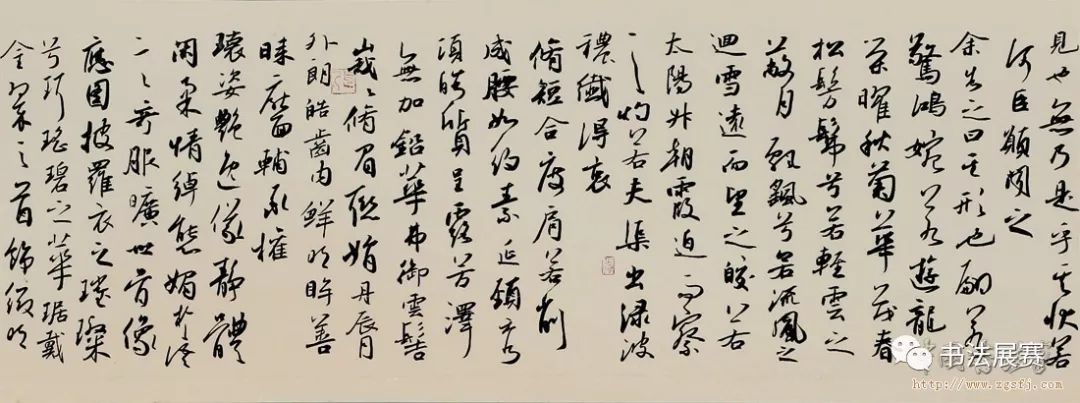 見也無乃是乎其狀若
何臣願聞之
余告之曰其形也翩若
驚鴻婉若遊龍
榮曜秋菊華茂春
松髣髴兮若輕雲之
蔽月飄飖兮若流風之
迴雪遠而望之皎若
太陽升朝霞迫而察
之灼若夫渠出渌波
襛纖得衷
脩短合度肩若削
成腰如約素延頸秀
項皓質呈露芳澤
無加鉛華弗御雲髻
峩峩脩眉聯娟丹脣
外朗皓齒内鮮明眸善
睞靨輔承權
瓌姿艷逸儀靜體
閑柔情綽態媚於語
言奇服曠世骨像
應圖披羅衣之璀璨
兮珥瑤碧之華琚戴
金翠之首飾綴明
书法展赛
http://www.zgsfj.com